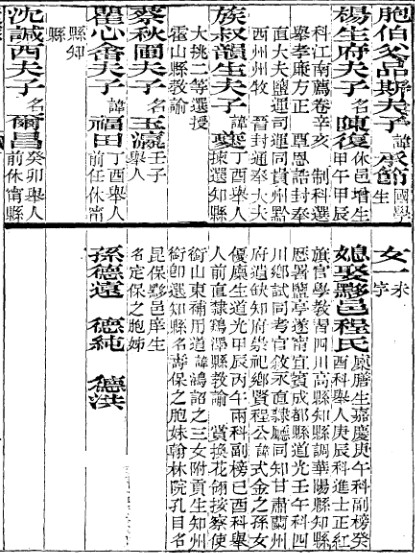 胞伯父品斯夫子 諱承節 國學生
楊生府夫子 名陳復 休邑增生 甲午甲辰
科江南薦卷辛亥 制科選
舉孝廉方正 覃恩誥封奉
直大夫鹽運司運同貴州黔
西州州牧 晉封通奉大夫
族叔韻生夫子 諱夔 丁酉舉人 揀選知縣
大挑二等選授
霍山縣教諭
蔡秋圃夫子 名玉瀛 壬子舉人
瞿心會夫子 諱福田 丁酉舉人 前任休甯
縣知縣
沈誠西夫子 名爾昌 癸卯舉人 前休甯縣
女一 未字
媳娶黟邑程氏 廩膳生嘉慶庚午科副榜癸酉科舉人庚辰科進士正紅
旗官學教習四川高縣知縣調華陽縣知縣
歷署鹽亭遂甯宜賓成都縣道光壬午科四
川鄉試同考官敘永直隸廳同知甘肅蘭州
府遺缺知府崇祀鄉賢程公諱式金之孫女
優廩生道光甲辰丙午兩科副榜己酉科舉
人前直隸鷄澤縣教諭 賞換花翎按察使
銜山東補用道諱鴻詔之三女附貢生知州
銜卽選知縣名壽保之胞妹翰林院孔目名
昆保黟邑庠生
名定保之胞姊
孫德遠 德純 德洪